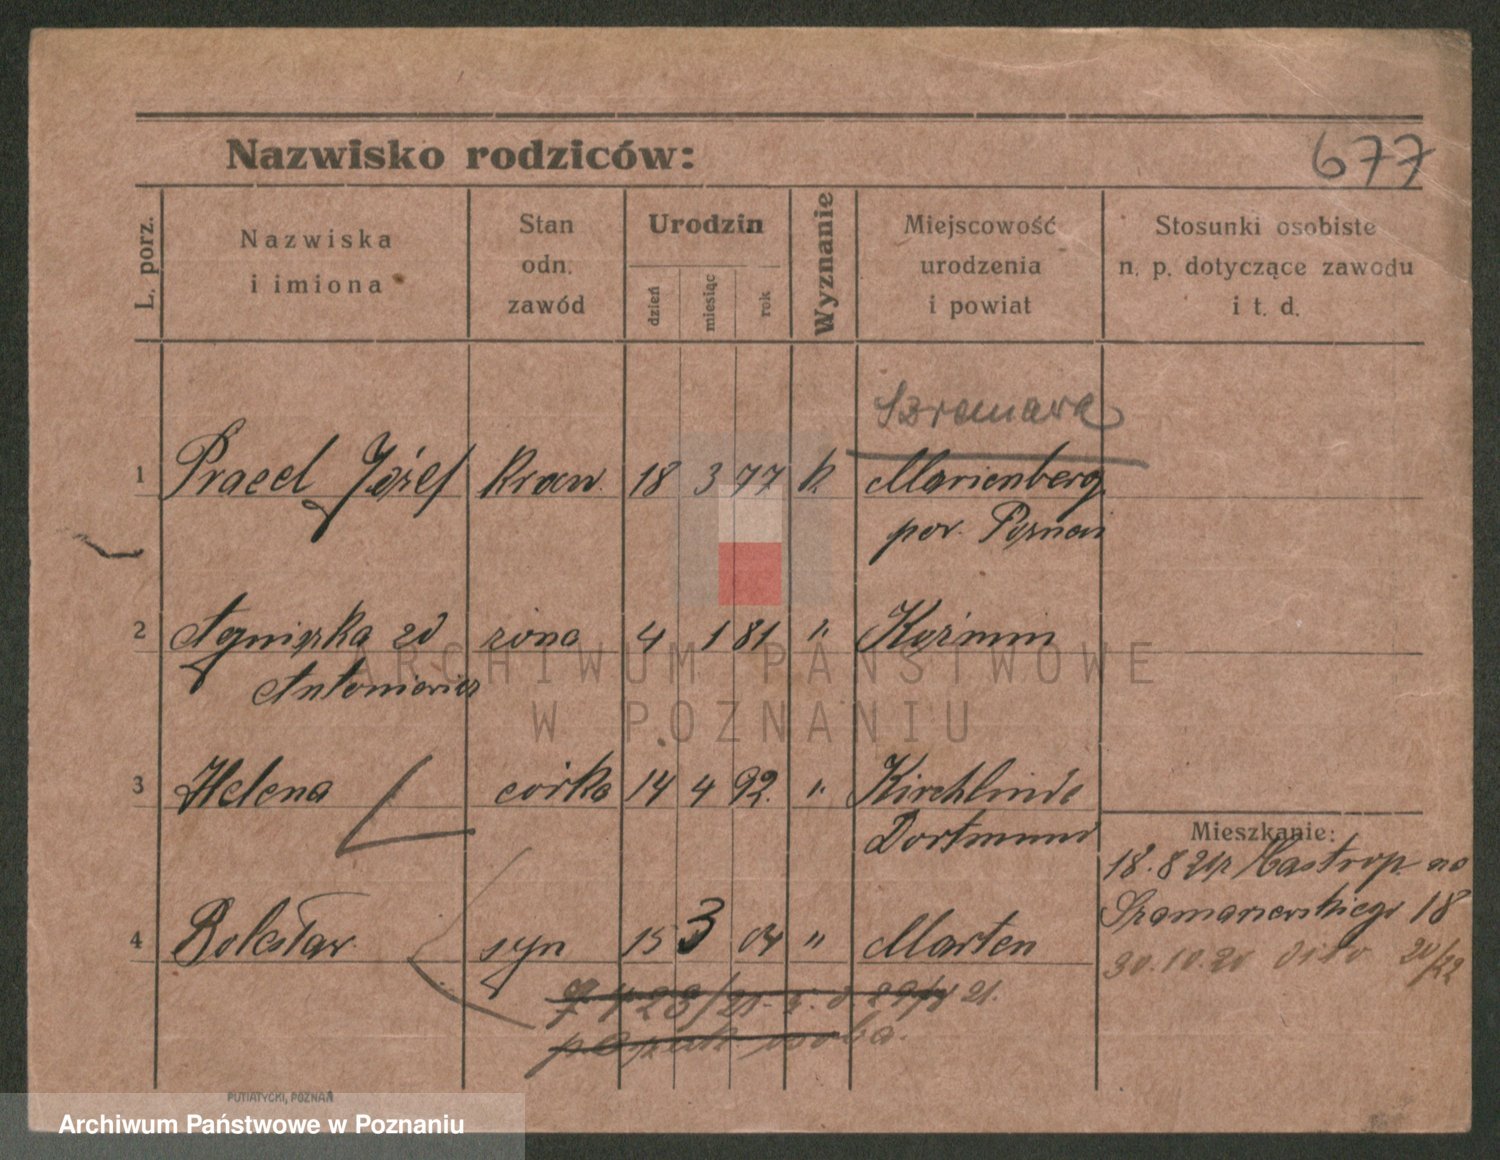 Nazwisko rodziców:
677
L. porz.
Nazwiska
i imiona
Stan
odn.
zawód
Urodzin
dzień
miesiąc
rok
Wyznanie
Miejscowość
urodzenia
i powiat
Stosunki osobiste
n. p. dotyczące zawodu
i t. d.
1 Pracel Józef kraw. 18 3 77 k. Marienberg
pow. Poznań
2 Agnieszka zd żona 4 1 81 " Koźmin
Antoniewicz
3 Helena córka 14 4 92. " Kirchlinde
Dortmund
4 Bolesław syn 15 3 04 " Marten
Mieszkanie:
18.8 21 Castrop na
Szamarzewskiego 18
30.10.20 dito 20/22
21.
osoba.
PUTIATYCKI, POZNAŃ
ARCHIWUM PAŃSTWOWE
W POZNANIU
Archiwum Państwowe w Poznaniu